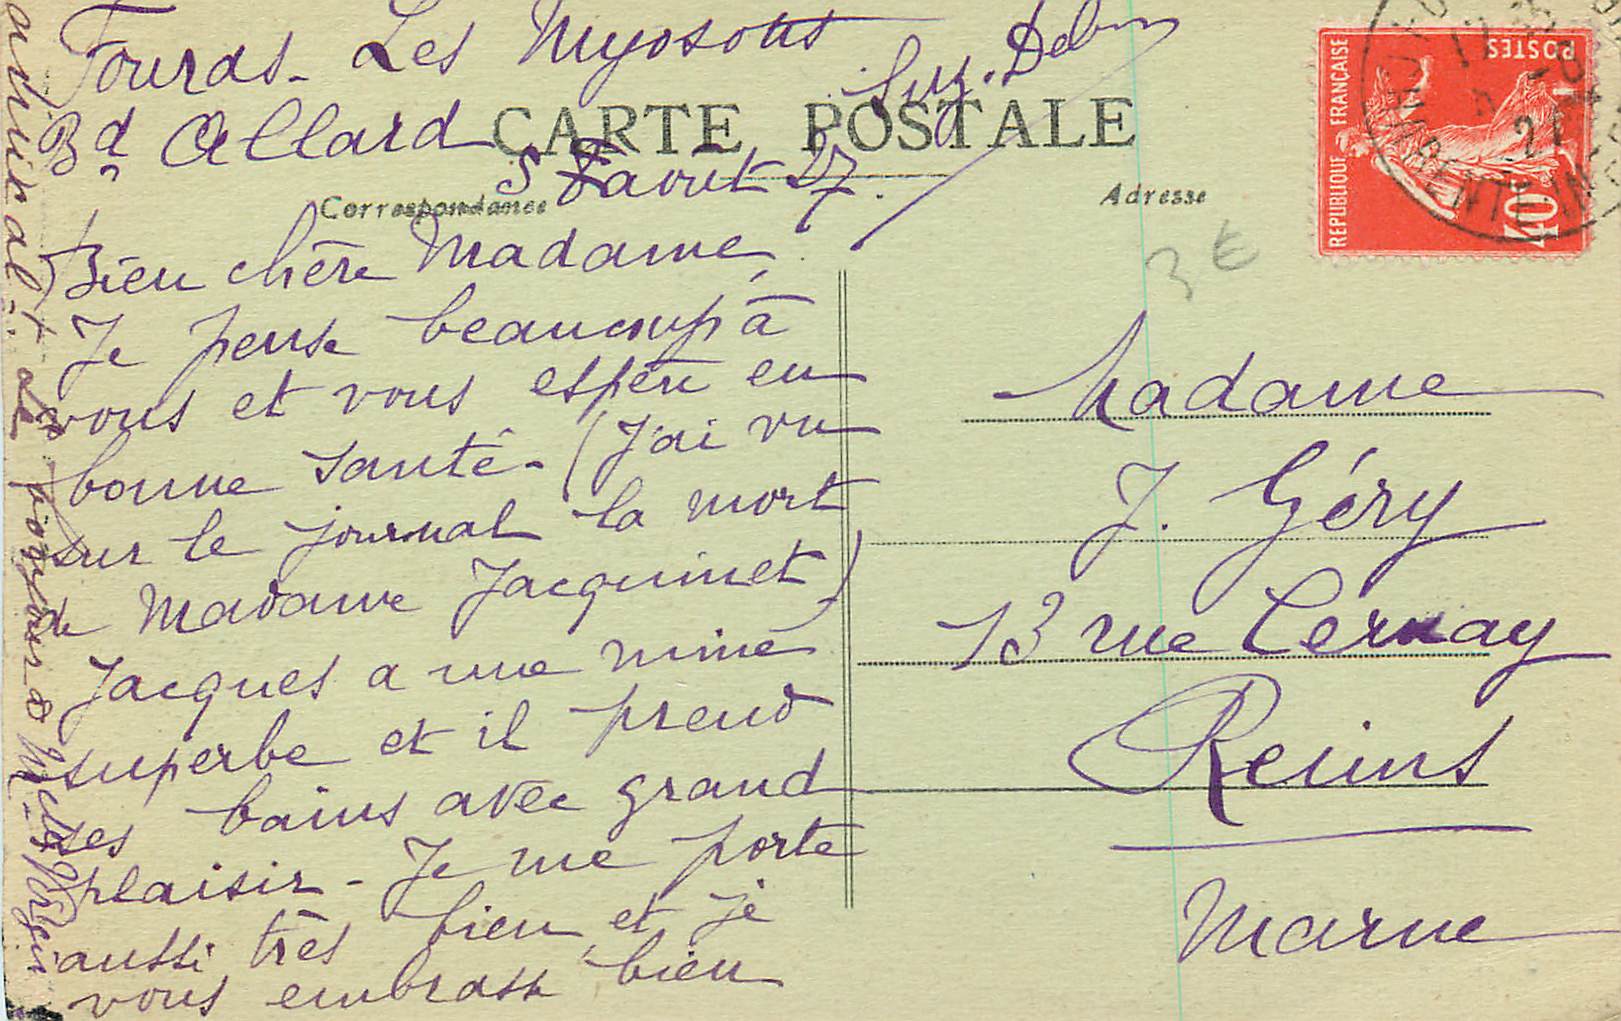 Fouras - Les Myosotis
Bd Allard
CARTE POSTALE
5 août 27.
Suz. Debu
Correspondance
Adresse
Bien chère Madame,
Je pense beaucoup à
vous et vous espère en
bonne santé - (J'ai vu
sur le journal la mort
de Madame Jacquinet)
Jacques a une mine
superbe et il prend
ses bains avec grand
plaisir - Je me porte
aussi très bien et je
vous embrasse bien
amical
bonjour à Melle
REPUBLIQUE FRANÇAISE
POSTES
40c
3 €
Madame
J. Géry
13 rue Cernay
Reims
Marne